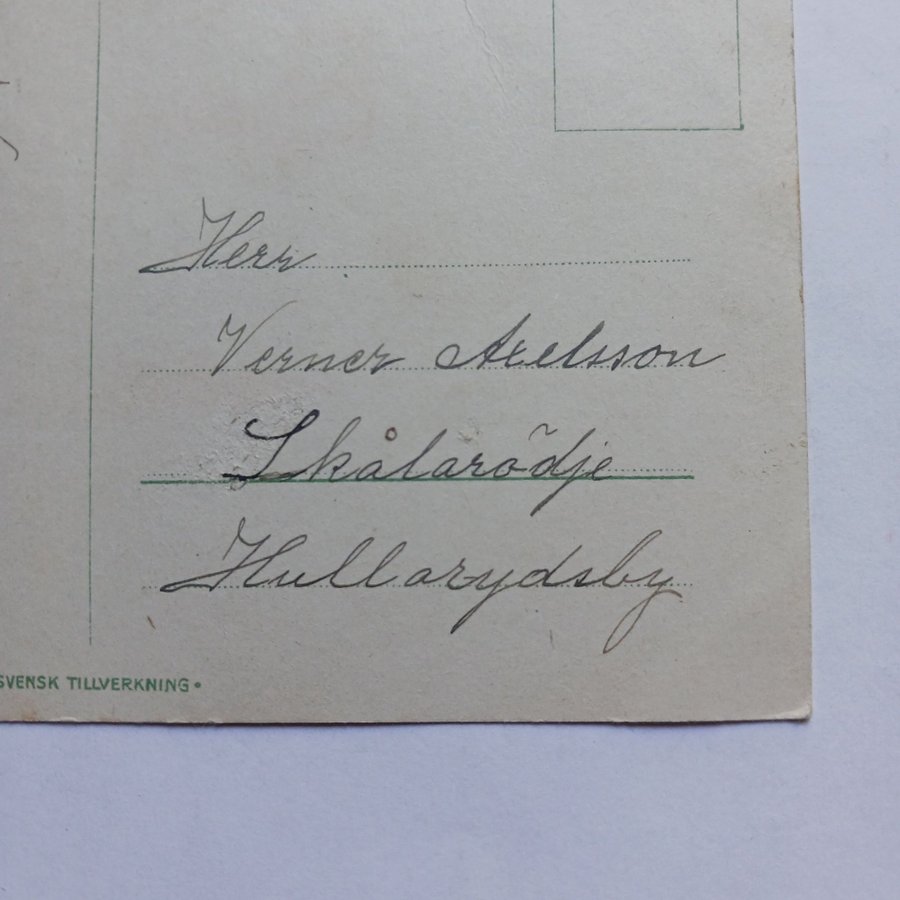 Herr
Verner Axelsson
Skålarödje
Hullarydsby
SVENSK TILLVERKNING